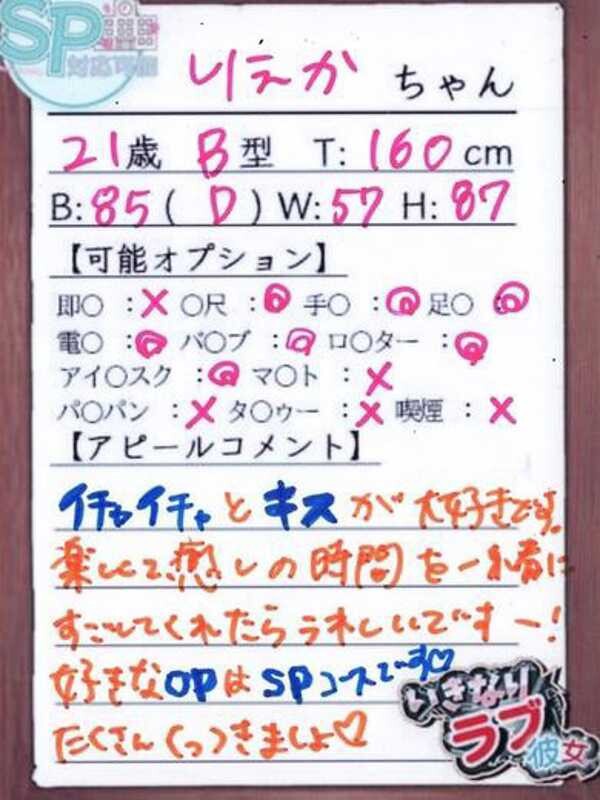 SP対応可能
りえか ちゃん
21歳 B型 T: 160cm
B: 85 ( D ) W: 57 H: 87
【可能オプション】
即○ : × ○尺 : ◎ 手○ : ◎ 足○ : ◎
電○ : ◎ バ○ブ : ○ ロ○ター : ◎
アイ○スク : ◎ マ○ト : ×
パ○パン : × タ○ゥー : × 喫煙 : ×
【アピールコメント】
イチャイチャとキスが大好きです。
楽しくて、癒しの時間を一緒に
すごしてくれたらうれしいですー!
好きなOPはSPコースです♡
たくさんくっつきましょ♡
いきなり
ラブ彼女